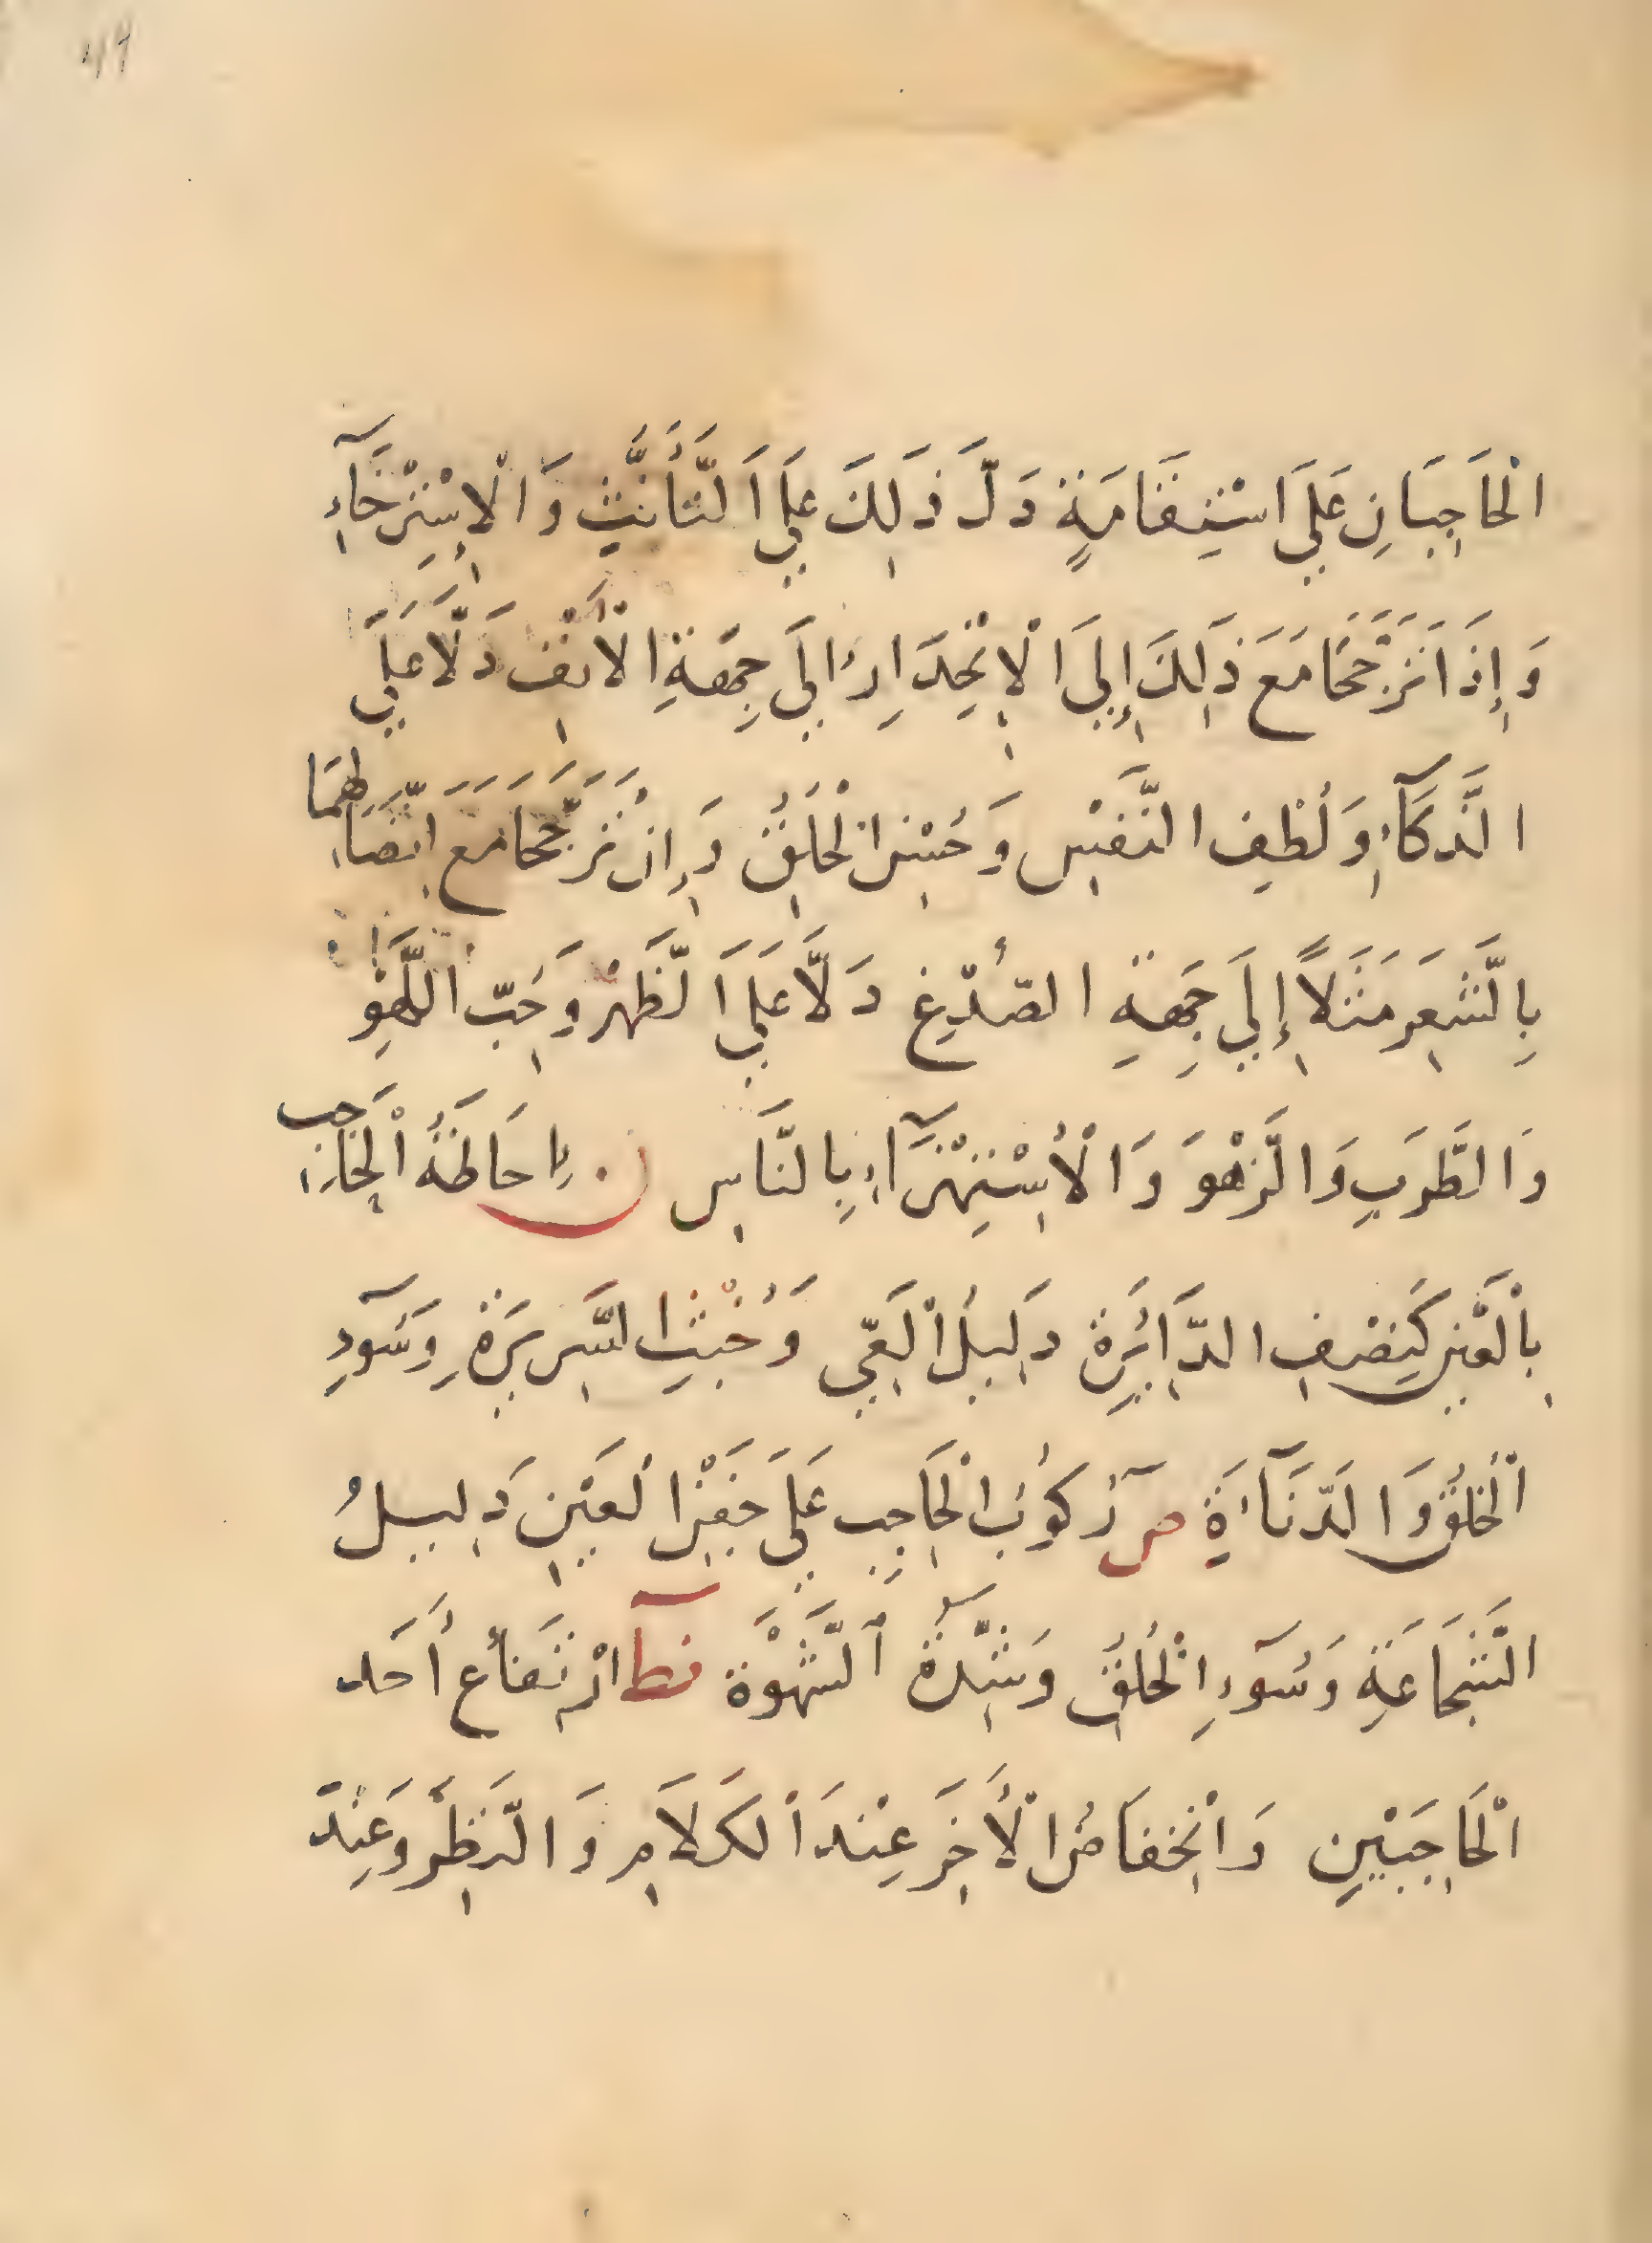 ٤٩
الْحَاجِبَانِ عَلَي اسْتِقَامَةٍ دَلَّ ذَلِكَ عَلَي التَّأَنُّثِ وَالْإِسْتِرْخَآءِ
وَإِذَا تَزَجَّجَا مَعَ ذَلِكَ إِلَي الْإِنْحِدَارِ الَي جِهَةِ الْأَنْفِ دَلَّا عَلَي
الذَّكَآءِ وَلُطْفِ النَّفْسِ وَحُسْنِ الْخُلُقِ وَإِنْ تَزَجَّجَا مَعَ اتِّصَالِهِمَا
بِالشَّعَرِ مَثَلاً إِلَي جِهَةِ الصُّدْغِ دَلَّا عَلَي الظَّهْرِ وَحُبِّ اللَّهْوِ
وَالطَّرَبِ وَالزَّهْوِ وَالْأُسْتِهْزَآءِ بِالنَّاسِ ن إِحَاطَةُ الْحَاجِبِ
بِالْعَيْنِ كَنِصْفِ الدَّائِرَةِ دَلِيلُ الْعَيِّ وَخُبْثِ السَّرِيرَةِ وَسُوٓءِ
الْخُلُقِ وَالدَّنَآءَةِ ص رُكُوبُ الْحَاجِبِ عَلَي جَفْنِ الْعَيْنِ دَلِيلُ
الشَّجَاعَةِ وَسُوٓءِ الْخُلُقِ وَشِدَّةِ الشَّهْوَةِ نط ارْتِفَاعُ أَحَد
الْحَاجِبَيْنِ وَانْخِفَاضُ الْأَخَرِ عِنْدَ الْكَلَامِ وَالنَّظَرِ وَعِنْدَ